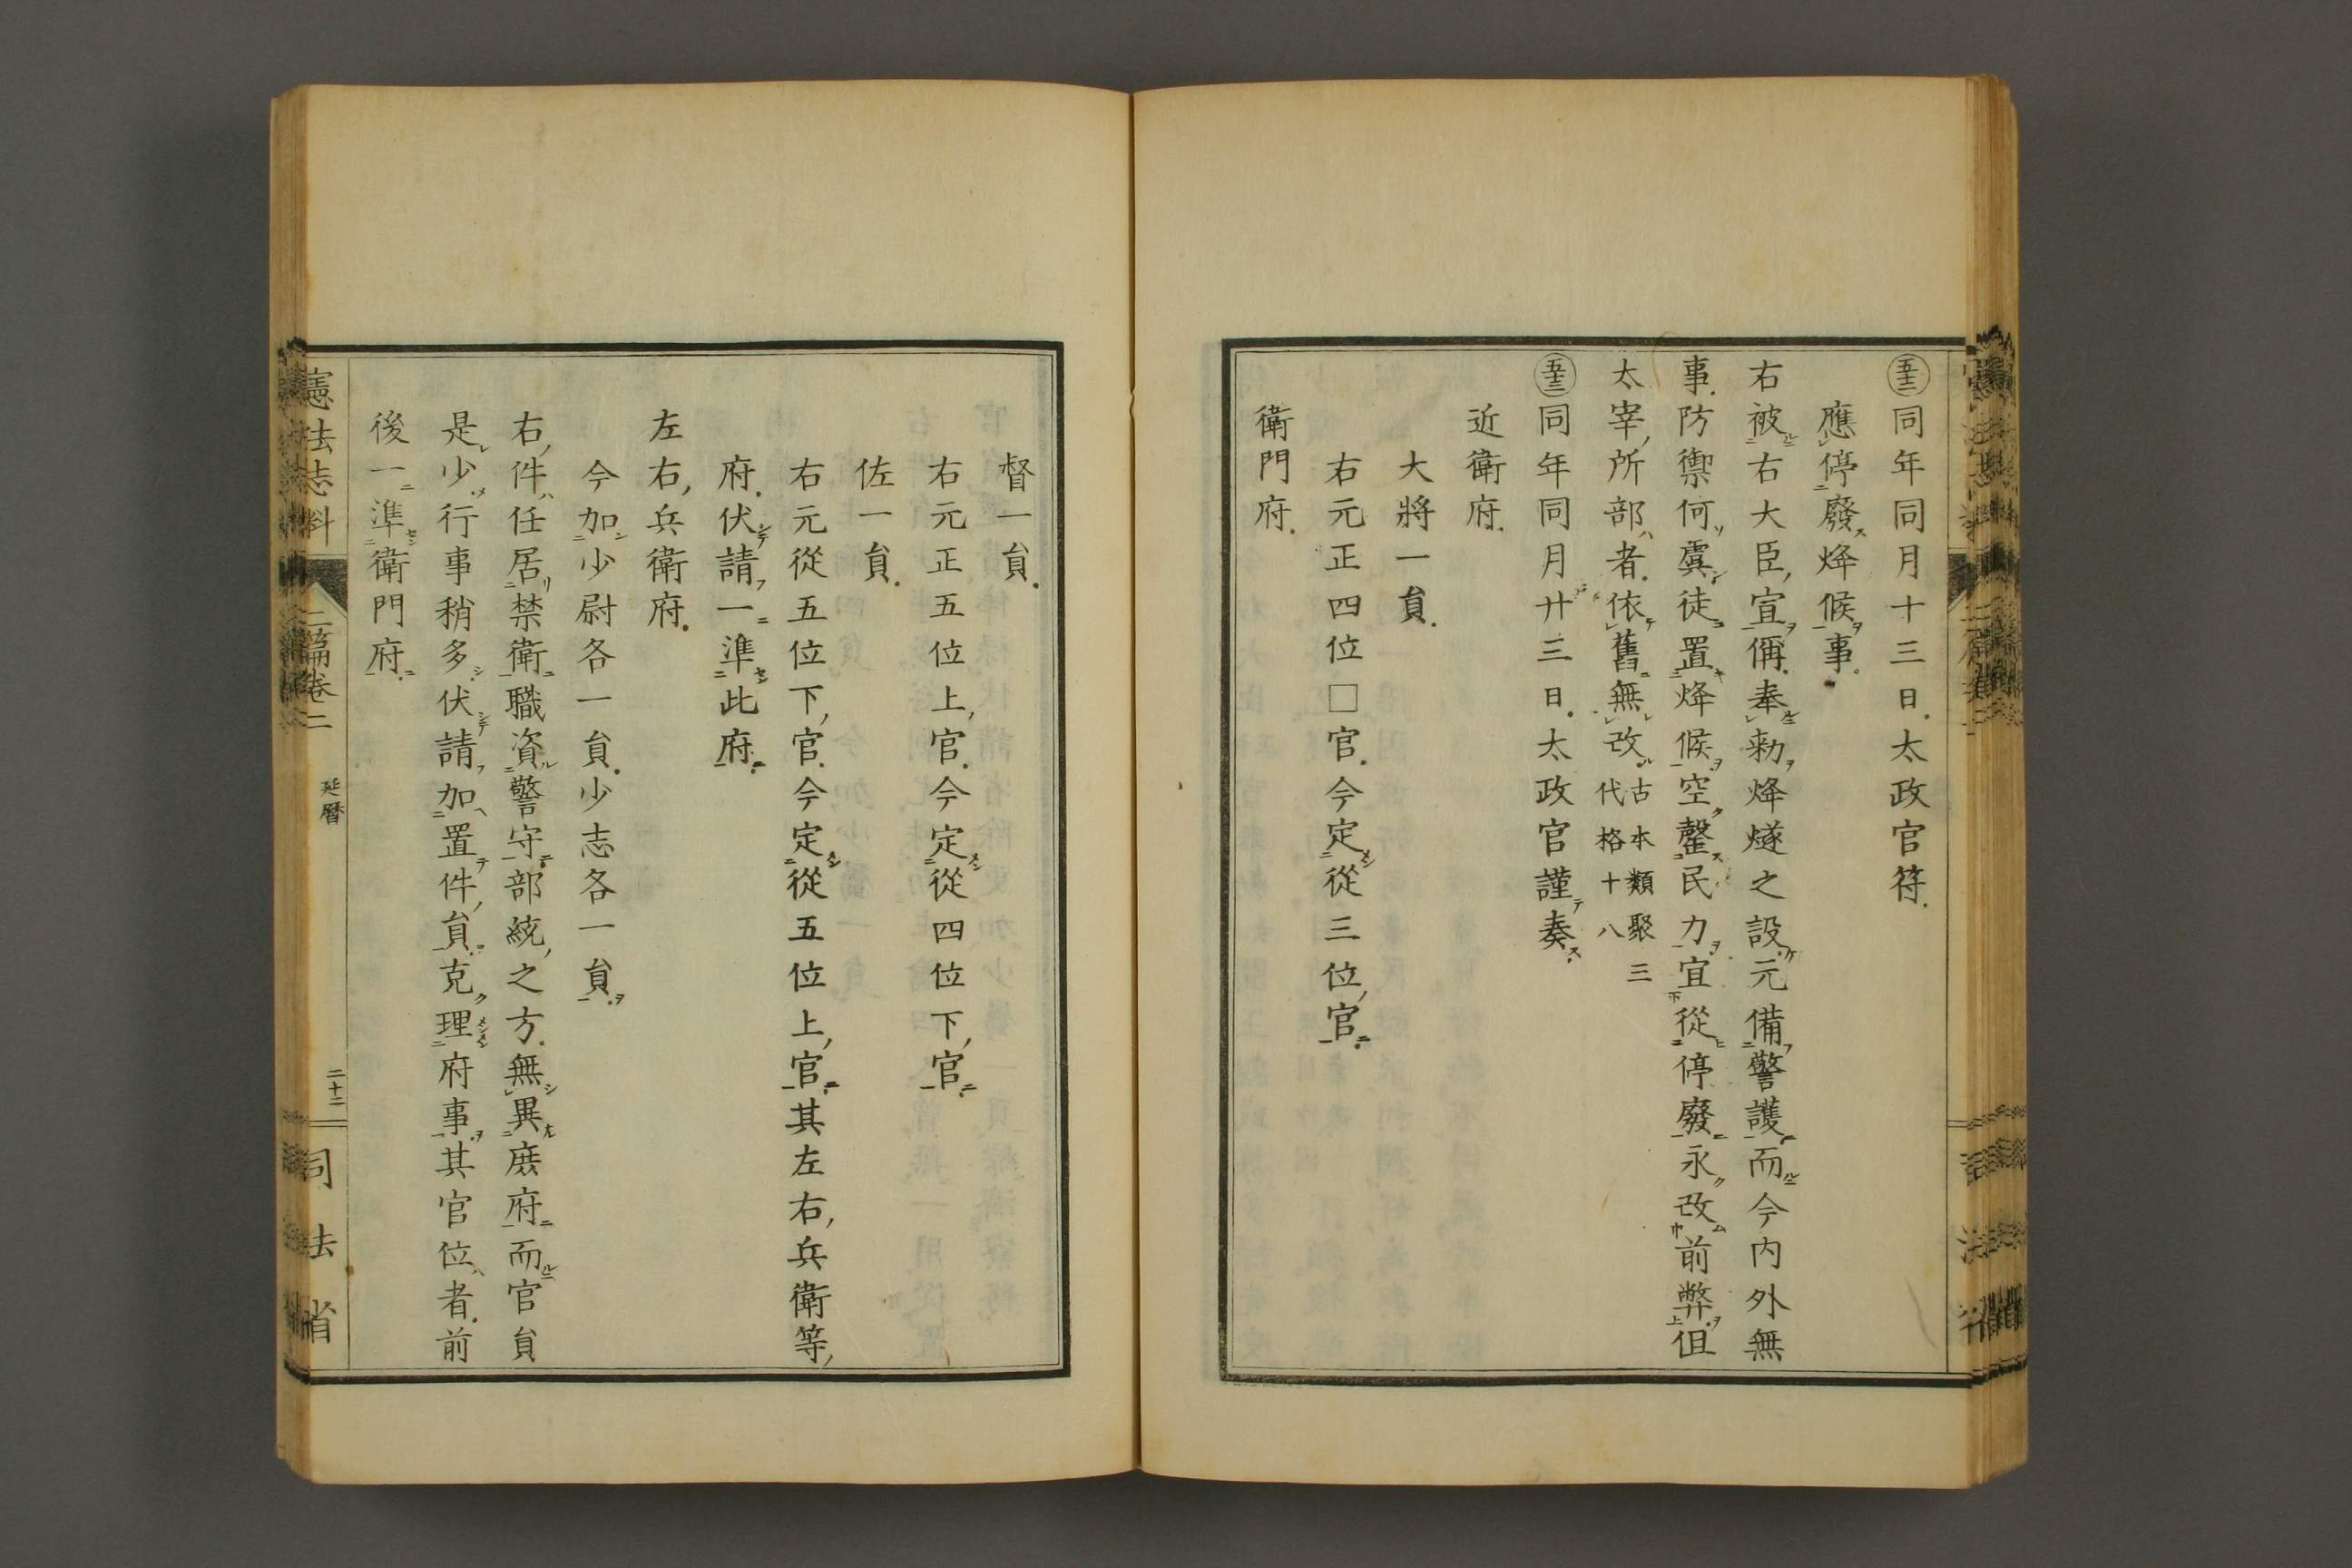 五十二 同年同月十三日.太政官符.
應停廢烽候事.
右被右大臣宣偁.奉勅烽燧之設.元備警護.而今內外無
事.防禦何虞.徒置烽候.空罄民力.宜從停廢.永改前弊.但
太宰所部者.依舊無改 古本類聚三代格十八
五十三 同年同月廿三日.太政官謹奏.
近衛府.
大將一員.
右元正四位□官.今定從三位官.
衛門府.
督一員.
右元正五位上官.今定從四位下官.
佐一員.
右元從五位下官.今定從五位上官.其左右兵衛等
府.伏請一準此府.
左右兵衛府.
今加少尉各一員.少志各一員.
右件任居禁衛職資警守.部統之方.無異庶府.而官員
是少行事稍多.伏請加置件員.克理府事.其官位者.前
後一準衛門府.
憲法志料 二篇卷二 延曆 二十二 司法省